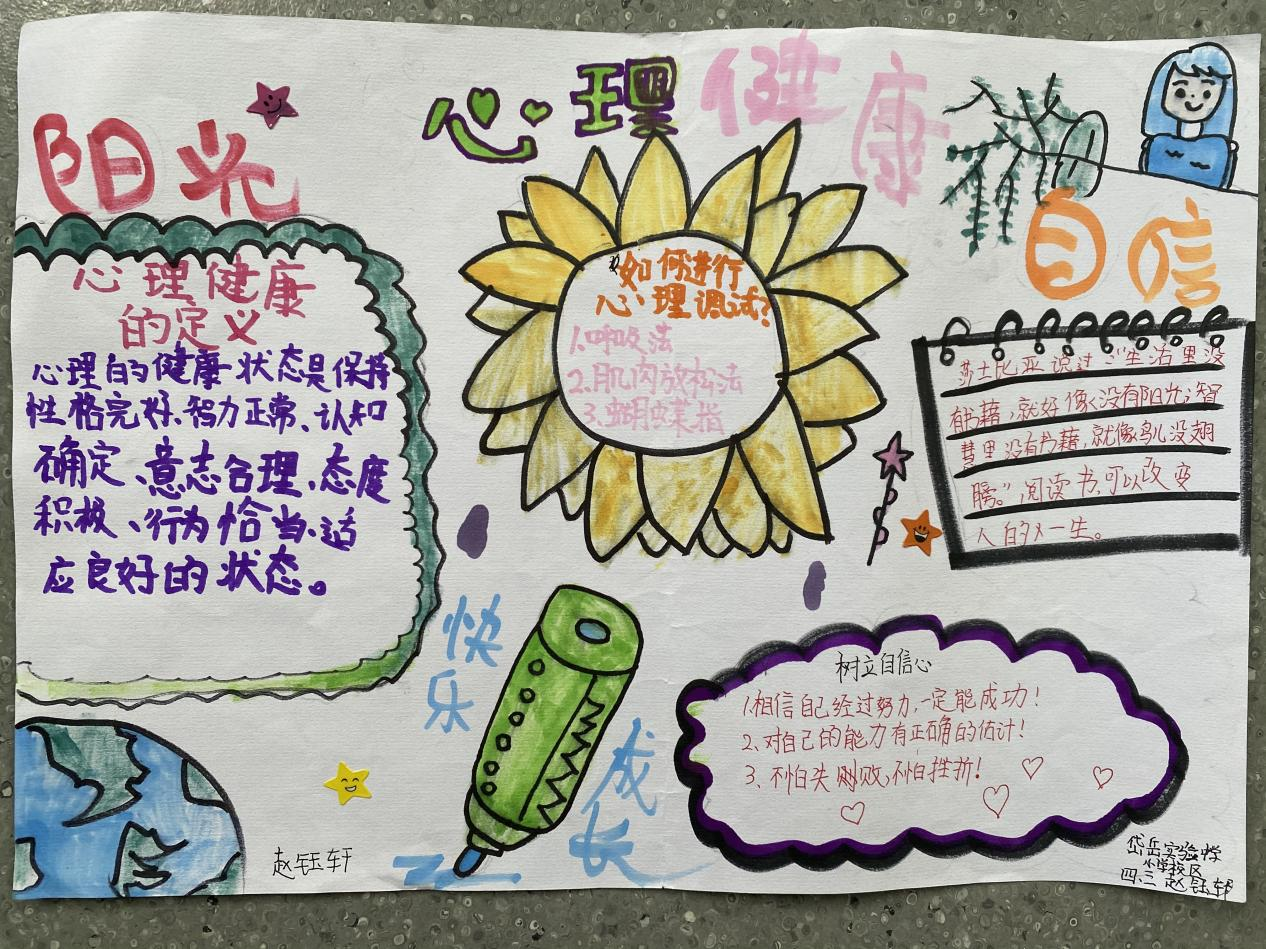 心理健康
阳光
自信
心理健康
的定义
心理的健康状态是保持
性格完好、智力正常、认知
确定、意志合理、态度
积极、行为恰当、适
应良好的状态。
如何进行
心理调试?
1.呼吸法
2.肌肉放松法
3.蝴蝶指
莎士比亚说过:“生活里没
有书籍,就好像没有阳光;智
慧里没有书籍,就像鸟儿没翅
膀。”阅读书,可以改变
人的一生。
快乐
成长
树立自信心
1.相信自己经过努力,一定能成功!
2、对自己的能力有正确的估计!
3、不怕失败,不怕挫折!
赵钰轩
岱岳实验中学
小学校区
四、三 赵钰轩